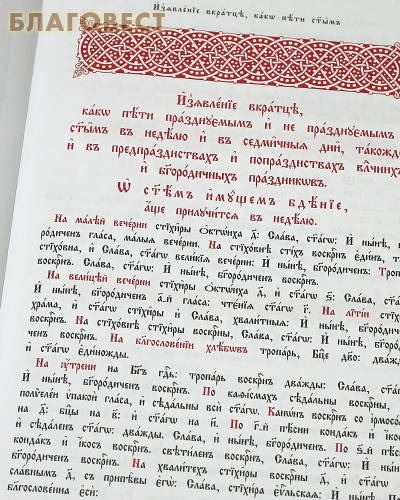 БЛАГОВЕСТ
И҆з̾ѧвле́нїе вкра́тцѣ, ка́кѡ пѣ́ти ст҃ы̑мъ
И҆з̾ѧвле́нїе вкра́тцѣ,
ка́кѡ пѣ́ти пра́зднꙋємымъ и҆ не пра́зднꙋємымъ
ст҃ы̑мъ въ недѣ́лю и҆ въ седми́чныѧ дни̑, тако́жде
и҆ въ предпра́зднствахъ и҆ попра́зднствахъ влⷣчнихъ
и҆ бг҃оро́дичныхъ пра́здникѡвъ.
Ѡ҆ ст҃ѣ́мъ и҆мꙋ́щемъ бдѣ́нїе,
а҆́ще прилꙋчи́тсѧ въ недѣ́лю.
На ма́лѣй вече́рни стїхи̑ры ѻ҆ктѡ́иха д҃. Сла́ва, ст҃а́гѡ: И҆ ны́нѣ,
ро́диченъ гла́са, ма́лыѧ вече́рни. На стїхо́внѣ стїхъ воскрⷭ҇нъ є҆ди́нъ,
стїхѡ́вна, и҆ Сла́ва, ст҃а́гѡ вели́кїѧ вече́рни: И҆ ны́нѣ, бг҃оро́диченъ: Тропа́рь
воскрⷭ҇нъ. Сла́ва, ст҃а́гѡ: И҆ ны́нѣ, бг҃оро́диченъ воскрⷭ҇нъ.
На вели́цѣй вече́рни стїхи̑ры ѻ҆ктѡ́иха д҃, и҆ ст҃а́гѡ ѕ҃: Сла́ва, ст҃а́гѡ:
И҆ ны́нѣ, бг҃оро́диченъ а҃-й гла́са: чтє́нїѧ ст҃а́гѡ г҃. На лїті́и стїхи́ра
хра́ма, и҆ ст҃а́гѡ стїхи̑ры и҆ Сла́ва, хвали́тнаѧ: И҆ ны́нѣ, бг҃оро́диченъ
воскрⷭ҇нъ. На стїхо́внѣ стїхи̑ры воскрⷭ҇ны, Сла́ва, ст҃а́гѡ: И҆ ны́нѣ, бг҃оро́ди-
ченъ воскрⷭ҇нъ. На блг҃ослове́нїи хлѣ́бѡвъ тропа́рь, Бц҃е дв҃о: два́жды,
и҆ ст҃а́гѡ є҆ди́ножды.
На ᲂу҆́трени на Бг҃ъ гдⷭ҇ь: тропа́рь воскрⷭ҇нъ два́жды: Сла́ва, ст҃а́гѡ:
И҆ ны́нѣ, бг҃оро́диченъ воскрⷭ҇нъ. По каѳі́смахъ сѣда́льны воскрⷭ҇ны,
полꙋеле́й ѵ҆пакоѝ гла́са, и҆ сѣда̑льны всѝ ст҃а́гѡ. Канѡ́нъ воскрⷭ҇нъ со і҆рмосо́мъ
на д҃: бц҃ы на в҃: и҆ ст҃а́гѡ на и҃. По г҃-й пѣ́сни конда́къ и҆ і҆́косъ
и҆ сѣда́ленъ ст҃а́гѡ: два́жды. Сла́ва, и҆ ны́нѣ, бг҃оро́диченъ: По ѕ҃-й пѣ́сни
конда́къ и҆ і҆́косъ воскрⷭ҇нъ. свѣти́ленъ воскрⷭ҇нъ, Сла́ва, ст҃а́гѡ: И҆ ны́нѣ,
бг҃оро́диченъ воскрⷭ҇нъ. На хвали́техъ стїхи̑ры воскрⷭ҇ны д҃, и҆
сла́внымъ д҃, съ припѣ́вы є҆гѡ̀: Сла́ва, стїхи́ра є҆ѵⷢ҇льскаѧ: И҆ ны́нѣ,
благослове́нна є҆сѝ: